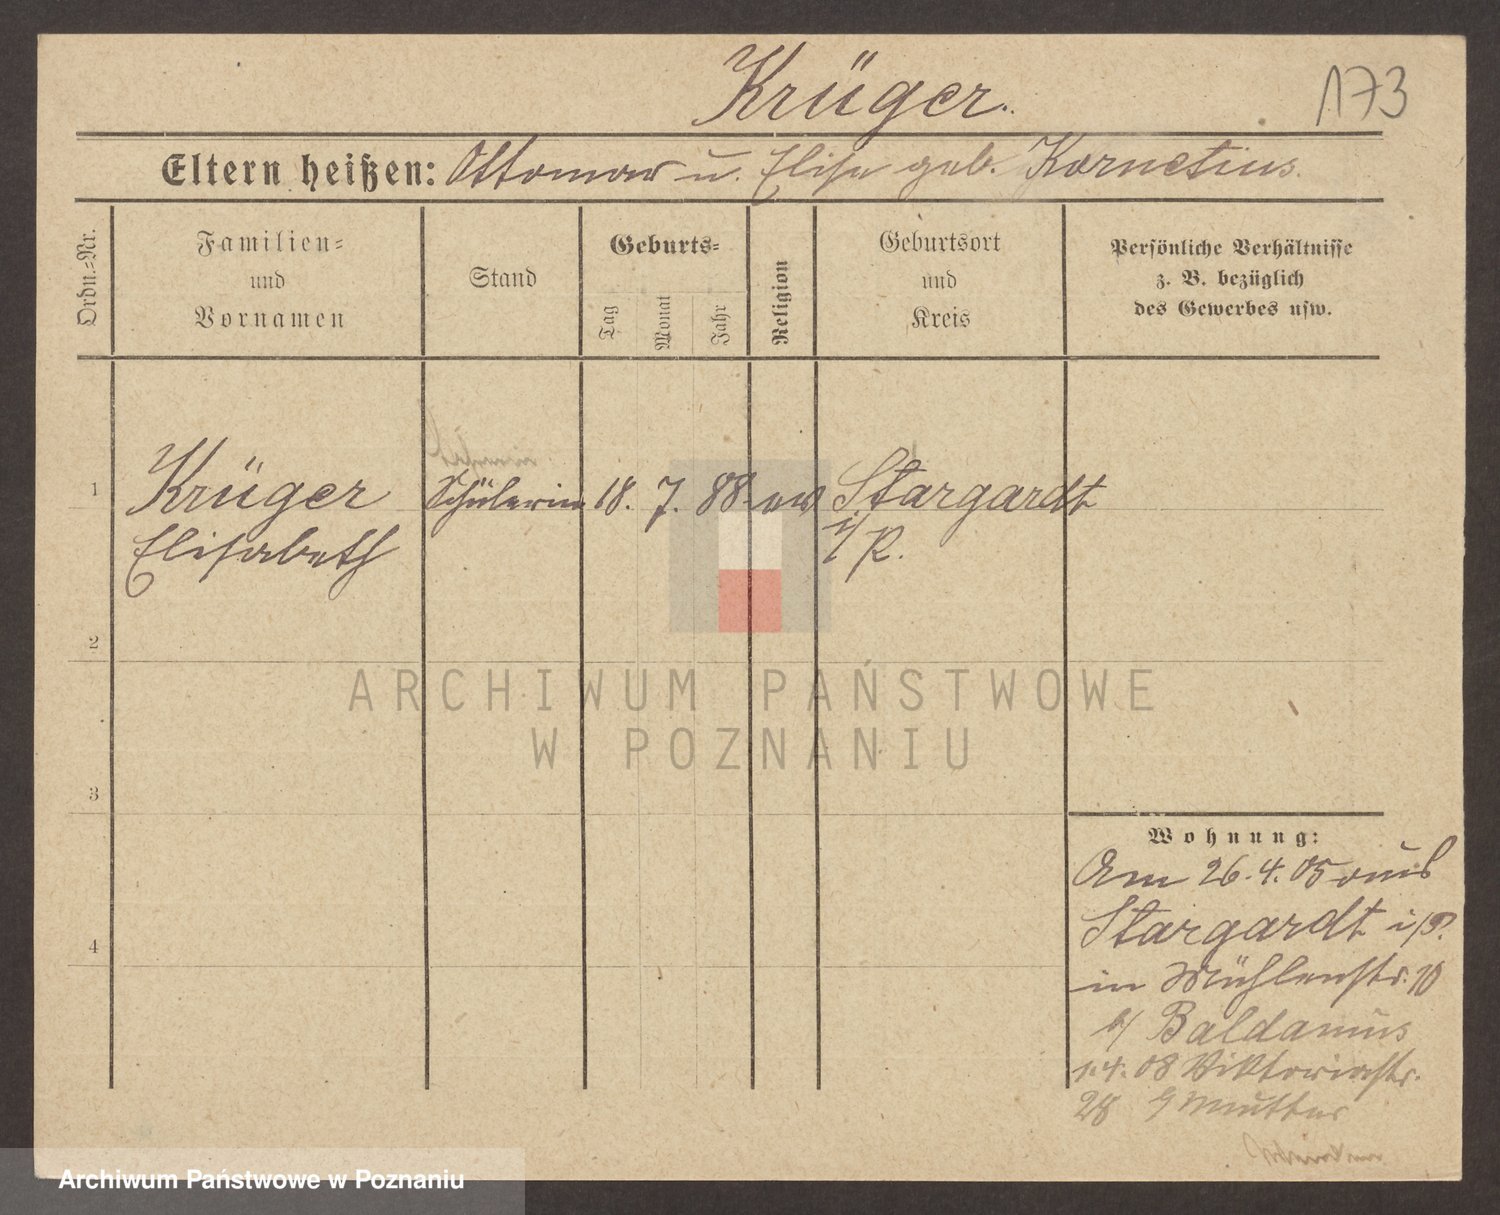 Krüger.
173
Eltern heißen: Ottomar u. Elise geb. Kornetius.
Ordn.=Nr.
Familien=
und
Vornamen
Stand
Geburts=
Tag
Monat
Jahr
Religion
Geburtsort
und
Kreis
Persönliche Verhältnisse
z. B. bezüglich
des Gewerbes usw.
1
Krüger
Schülerin
18. 7. 88.
ev
Stargardt
Elisabeth
i/P.
2
ARCHIWUM PAŃSTWOWE
W POZNANIU
3
Wohnung:
Am 26.4.05 aus
Stargardt i/P.
4
in Mühlenstr. 10
b/ Baldamus
1.4.08 Viktoriastr.
28 Mutter
Archiwum Państwowe w Poznaniu